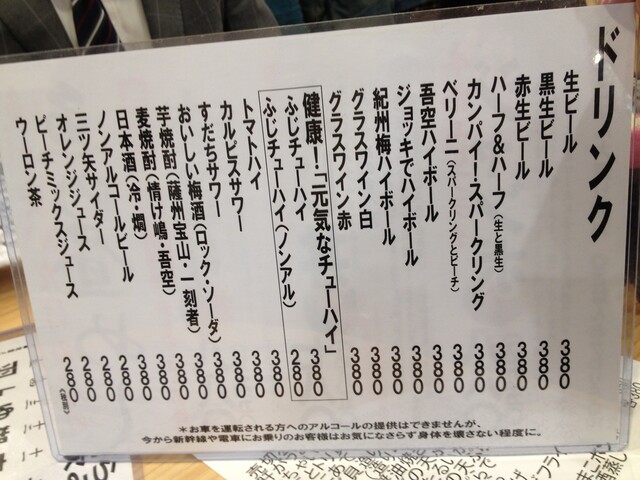 ドリンク
生ビール 380
黒生ビール 380
赤生ビール 380
ハーフ&ハーフ(生と黒生) 380
カンパイ!スパークリング 380
ベリーニ(スパークリングとピーチ) 380
吾空ハイボール 380
ジョッキでハイボール 380
紀州梅ハイボール 380
グラスワイン白 380
グラスワイン赤 380
健康!「元気なチューハイ」
ふじチューハイ 380
ふじチューハイ(ノンアル) 280
トマトハイ 380
カルピスサワー 380
すだちサワー 380
おいしい梅酒(ロック・ソーダ) 380
芋焼酎(薩州宝山・一刻者) 380
麦焼酎(情け嶋・吾空) 380
日本酒(冷・燗) 380
ノンアルコールビール 280
三ツ矢サイダー 280
オレンジジュース 280
ピーチミックスジュース 280
ウーロン茶 280
*お車を運転される方へのアルコールの提供はできませんが、
今から新幹線や電車にお乗りのお客様はお気になさらず身体を壊さない程度に。